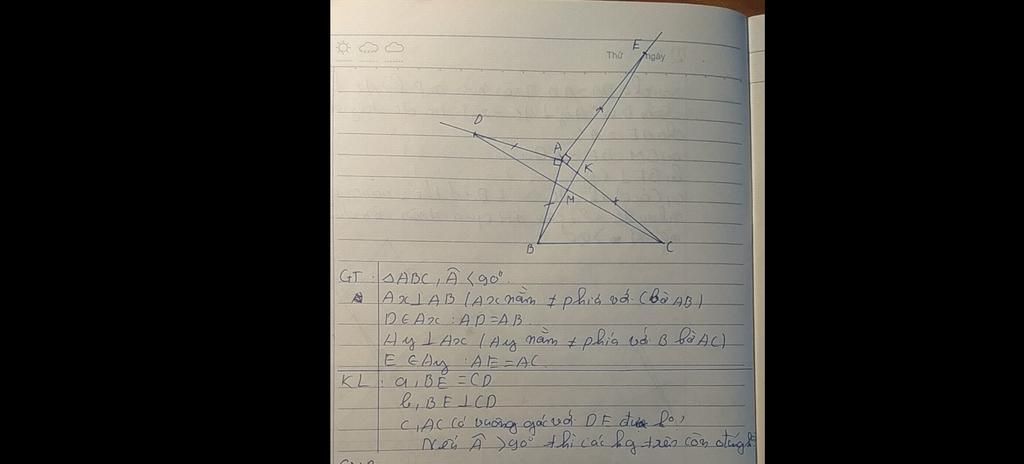 E
Thứ ngày
D
A
K
M
B
C
GT : △ABC, Â < 90°.
Ax ⊥ AB (Ax nằm ≠ phía với C bờ AB)
D ∈ Ax : AD = AB
Ay ⊥ Ax (Ay nằm ≠ phía với B bờ AC)
E ∈ Ay : AE = AC
KL : a, BE = CD
b, BE ⊥ CD
c, AC có vuông góc với DE được ko,
Nếu Â > 90° thì các kq trên còn đúng k